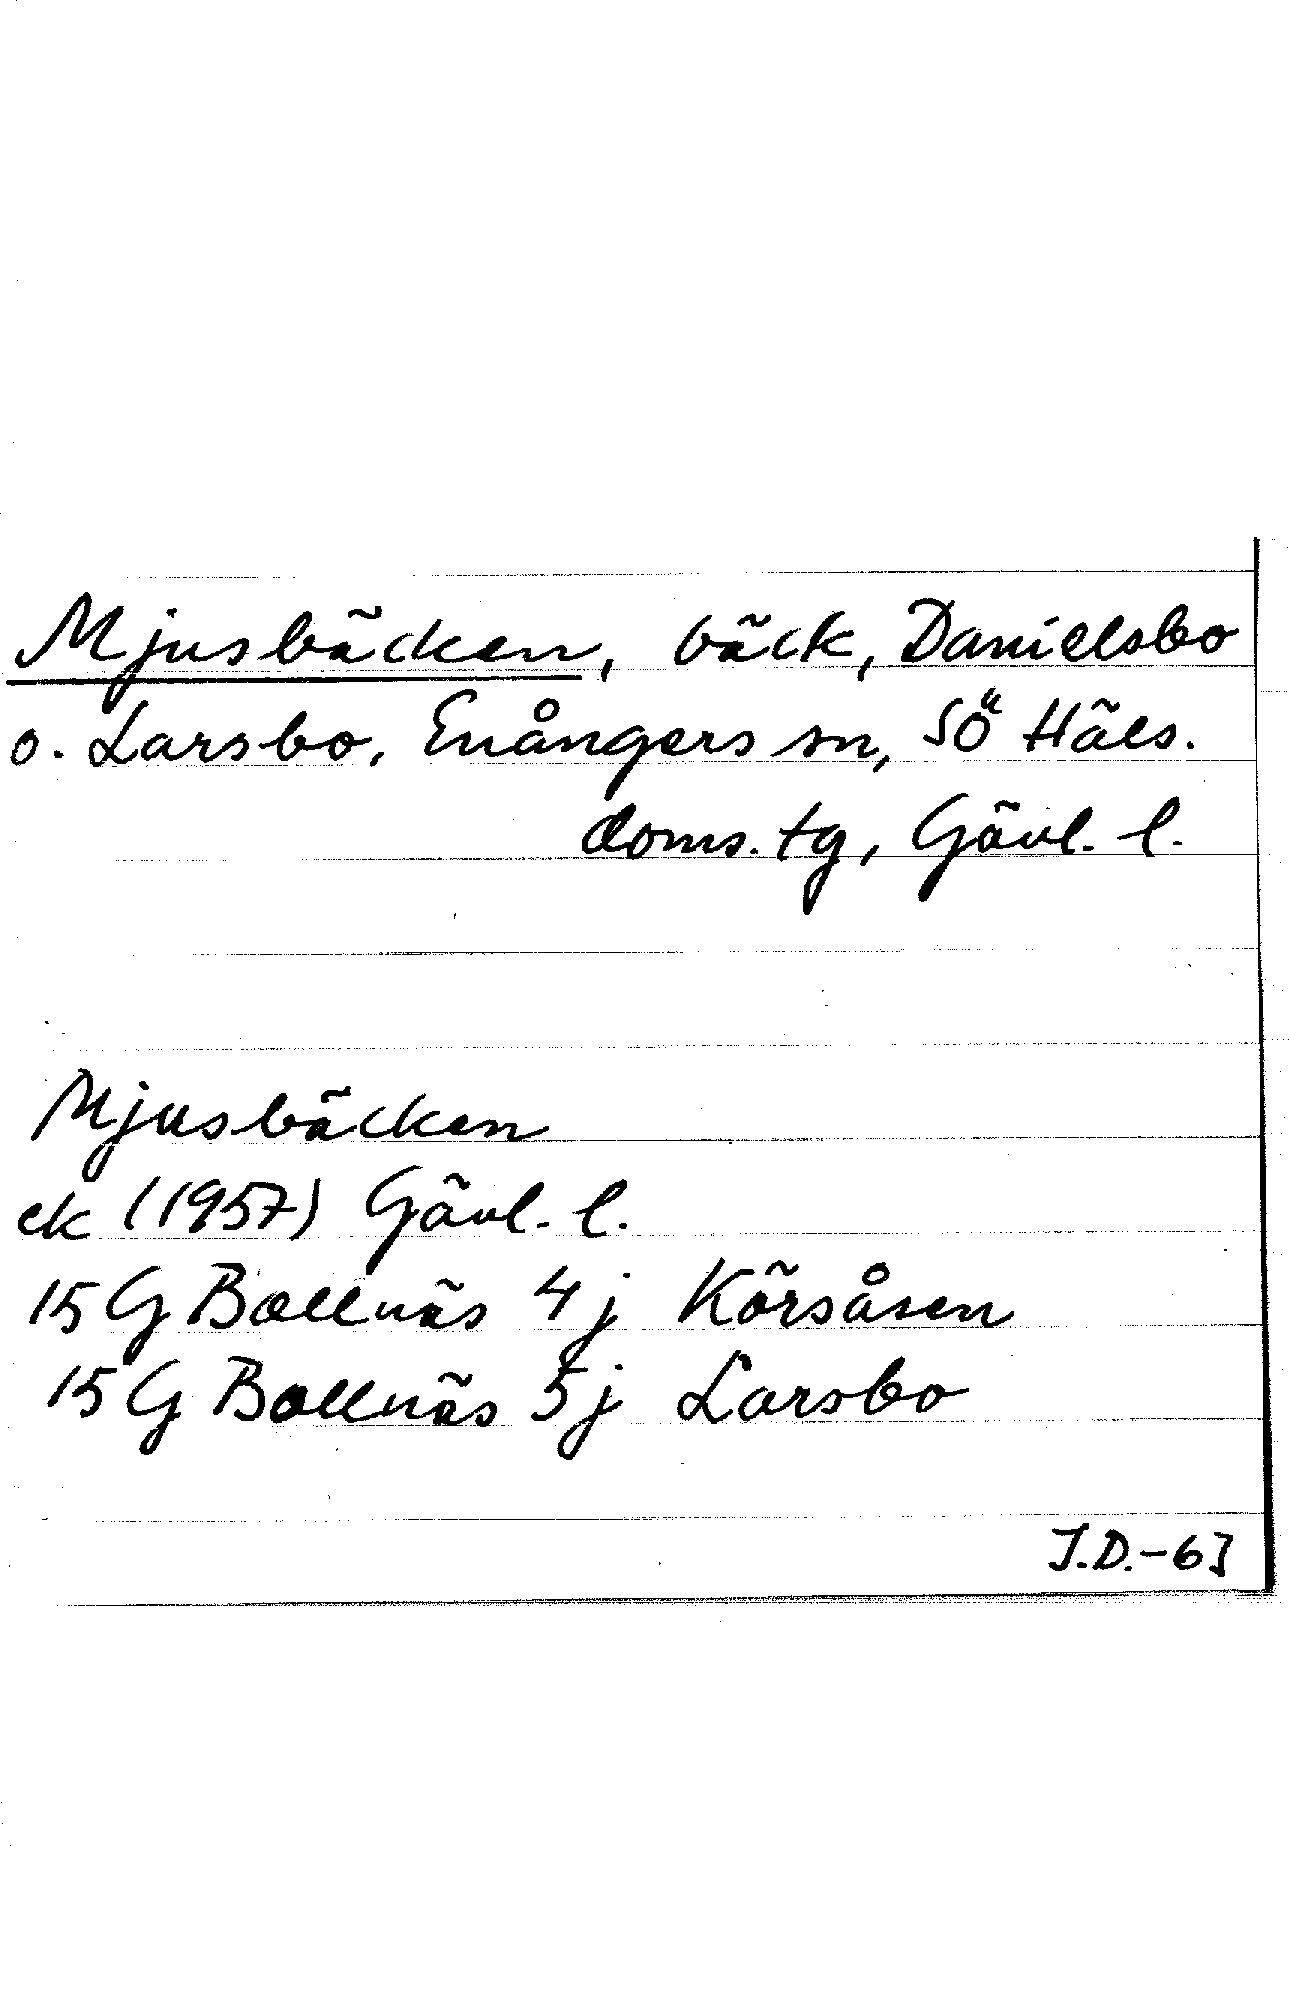 Mjusbäcken, bäck, Danielsbo
o. Larsbo, Enångers sn, SÖ Häls.
doms. tg, Gävl. l.
Mjusbäcken
ek (1957) Gävl. l.
15 G Bollnäs 4 j Körsåsen
15 G Bollnäs 5 j Larsbo
J.D.-63